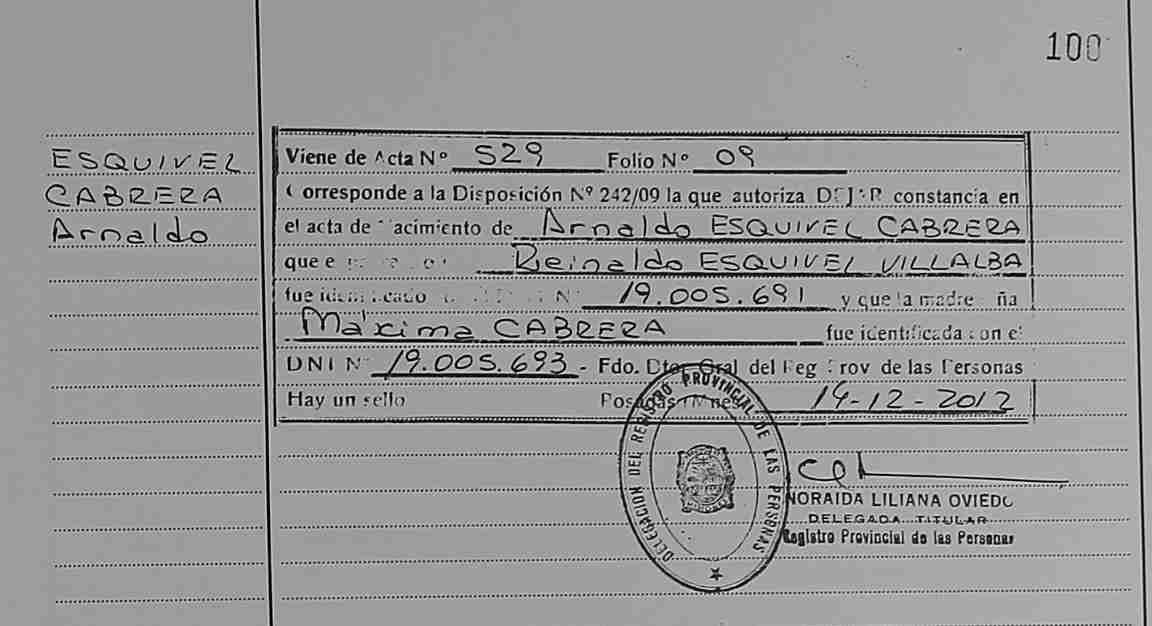 100
ESQUIVEL
CABRERA
Arnaldo
Viene de Acta Nº 529 Folio Nº 09
Corresponde a la Disposición Nº 242/09 la que autoriza DEJAR constancia en
el acta de nacimiento de Arnaldo ESQUIVEL CABRERA
que e Reinaldo ESQUIVEL VILLALBA
fue identificado Nº 19.005.691 y que la madre ña
Máxima CABRERA fue identificada con el
DNI Nº 19.005.693 - Fdo. Dtor. Gral del Reg Prov de las Personas
Hay un sello Posadas (Mnes) 14-12-2012
DELEGACION DEL REGISTRO PROVINCIAL DE LAS PERSONAS
NORAIDA LILIANA OVIEDO
DELEGADA TITULAR
Registro Provincial de las Personas